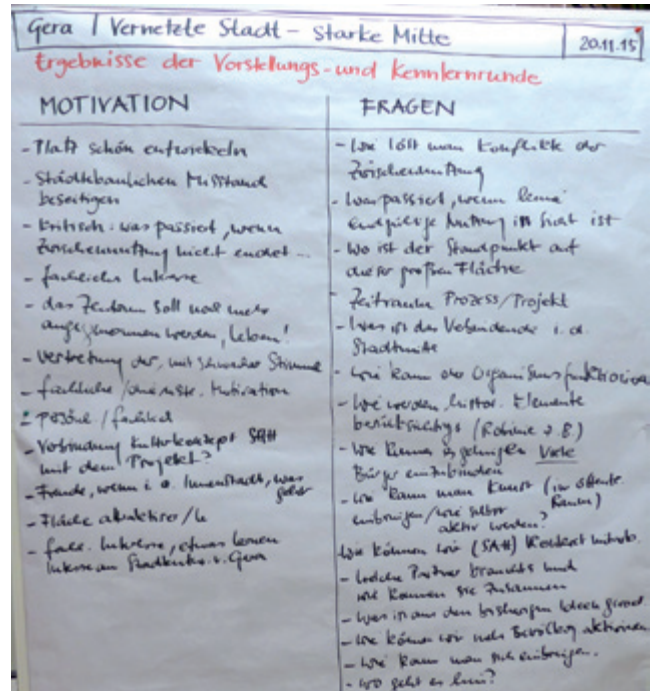 Gera / Vernetzte Stadt - Starke Mitte
20.11.15
Ergebnisse der Vorstellungs- und Kennlernrunde
MOTIVATION
- Platz schön entwickeln
- Städtebaulichen Missstand
beseitigen
- kritisch: was passiert, wenn
Zwischennutzung nicht endet...
- fachliches Interesse
- das Zentrum soll noch mehr
angenommen werden, leben!
- Vertretung der, mit schwacher Stimme
- fachliche / Motivation
- persönl / fachlich
- Verbindung Kulturkonzept
mit dem Projekt?
- Freude, wenn i. d. Innenstadt, was
geht
- Fläche attraktiver
- fach. Interesse, etwas lernen
Interesse an v. Gera
FRAGEN
- Wie löst man Konflikte der
Zwischennutzung
- Was passiert, wenn keine
endgültige Nutzung in Sicht ist
- Wo ist der Standpunkt auf
dieser großen Fläche
- Zeitraum Prozess/Projekt
- Was ist das Verbindende i. d.
Stadtmitte
- Wie kann der Organismus funktionieren
- Wie werden histor. Elemente
berücksichtigt (z.B.)
- Wie kann es gelingen Viele
Bürger einzubinden
- Wie kann man Kunst (im öffentl.
Raum)
einbringen / wie selbst
aktiv werden?
Wie können wir
- Welche Partner brauchts und
wie kommen sie zusammen
- Was ist aus den bisherigen Ideen geword.
- Wie können wir mehr
- Wie kann man sich einbringen.
- Wo geht es hin?